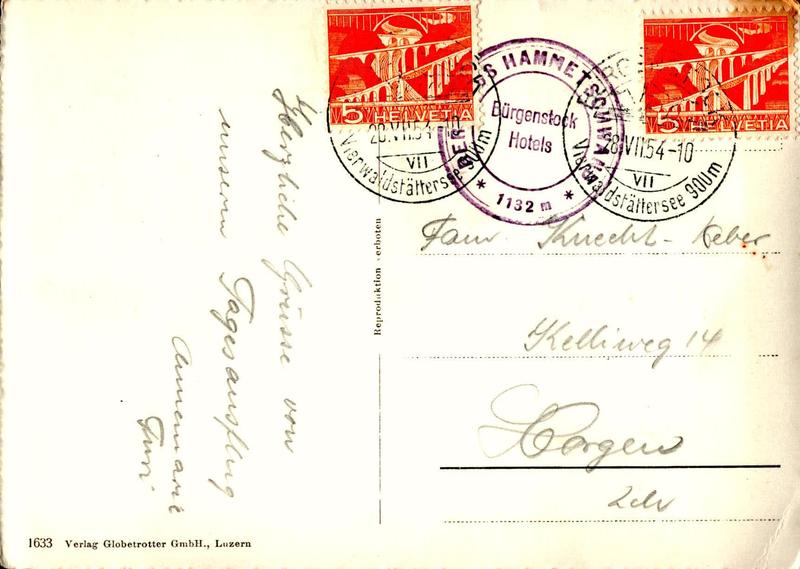 5 HELVETIA
5 HELVETIA
28.VII.54-10
VII
Vierwaldstättersee 900m
HAMMETSCHWAND
Bürgenstock
Hotels
* 1132 m *
28.VII.54-10
VII
Vierwaldstättersee 900m
Herzliche Grüsse von
unserm Tagesausflug
Annemarie
Reproduktion verboten
Fam. Knecht-
Kelliweg 14
Horgen
Zch
1633 Verlag Globetrotter GmbH., Luzern